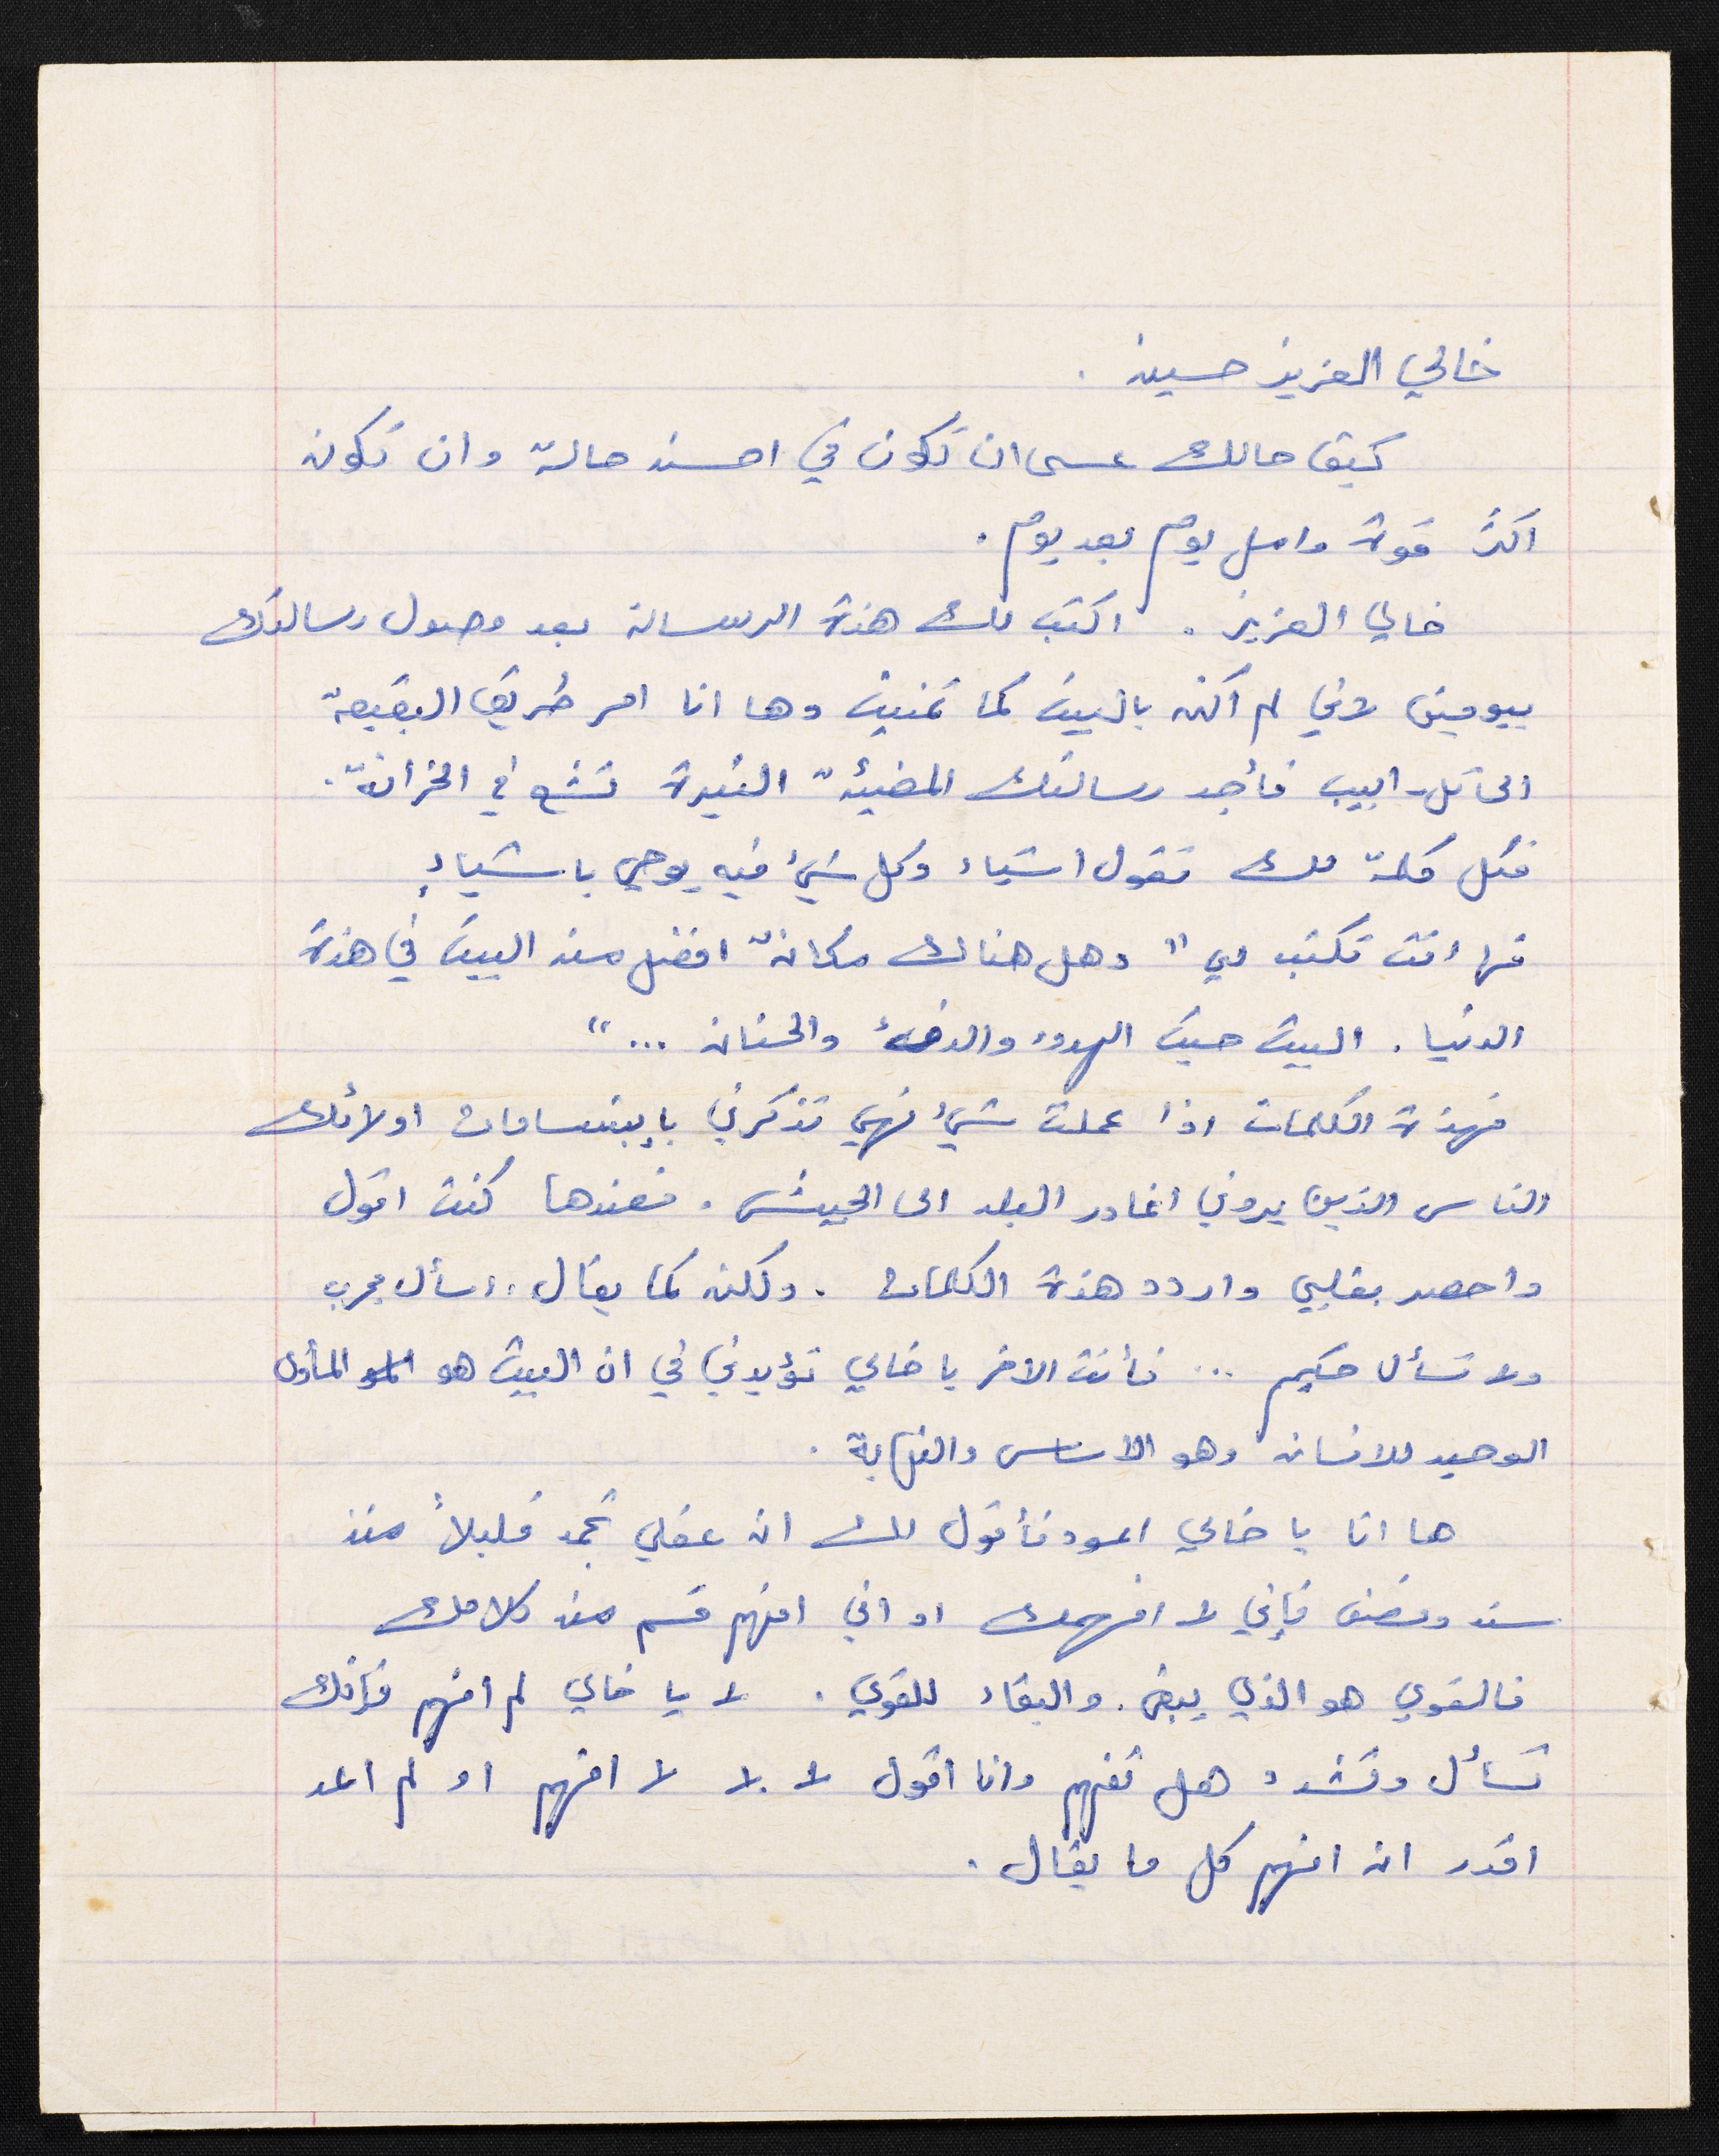 خالي العزيز حسين .
كيف حالك عسى ان تكون في احسن حالة وان تكون
اكثر قوة وامل يوم بعد يوم .
خالي العزيز . اكتب لك هذة الرسالة بعد وصول رسالتك
بيومين لاني لم اكن بالبيت كما تمنيت وها انا امر طريق البقيعة
الى تل-ابيب فأجد رسالتك المضيئة النيرة تشع في الخزانة .
فكل كلمة لك تقول اشياء وكل شيء فيه يوحي باشياء
فها انت تكتب لي " وهل هناك مكانة افضل من البيت في هذة
الدنيا . البيت حيث الهدوء والدفء والحنان ... "
فهذة الكلمات اذا عملت شيء فهي تذكرني بإبتسامات اولائك
الناس الذين يروني اغادر البلد الى الجيش . فعندها كنت اقول
واحصر بقلبي واردد هذة الكلمات . ولكن كما يقال ، اسأل مجرب
ولا تسأل حكيم ... فأنت الاخر يا خالي تؤيدني في ان البيت هو المأوى
الوحيد للانسان وهو الاساس والنهاية .
ها انا يا خالي اعود فأقول لك ان عقلي تجمد قليلاً منذ
سنه ونصف فإني لا افهمك او اني افهم قسم من كلامك
فالقوي هو الذي يبقى . والبقاء للقوي . لا يا خالي لم افهم فإنك
تسأل وتشدد هل تفهم وانا اقول لا لا لا افهم او لم اعد
اقدر ان افهم كل ما يقال .